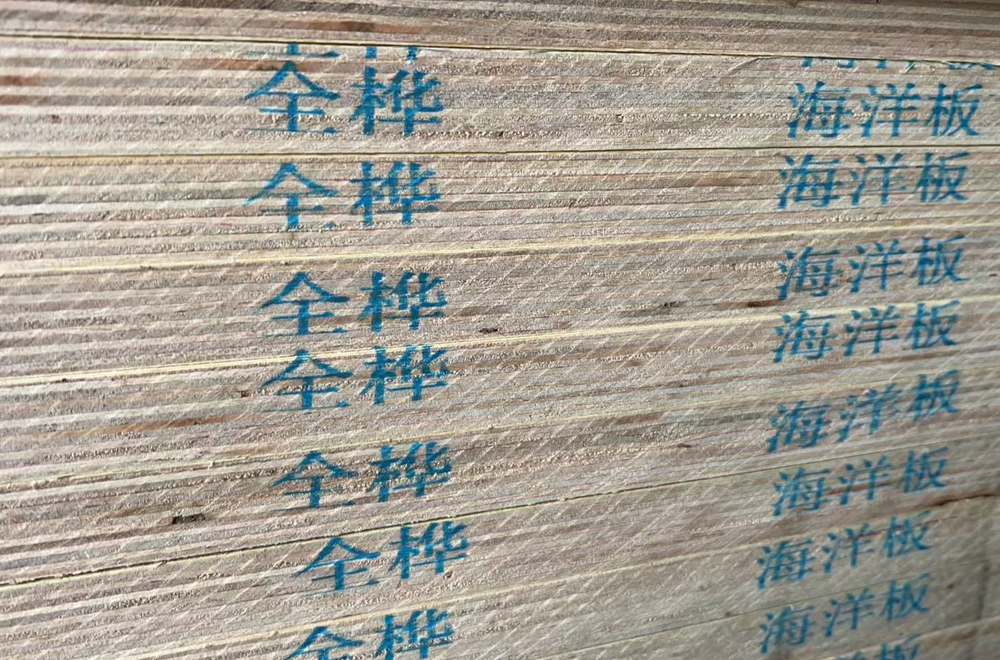 全桦 海洋板
全桦 海洋板
全桦 海洋板
全桦 海洋板
全桦 海洋板
全桦 海洋板
全桦 海洋板
海洋板